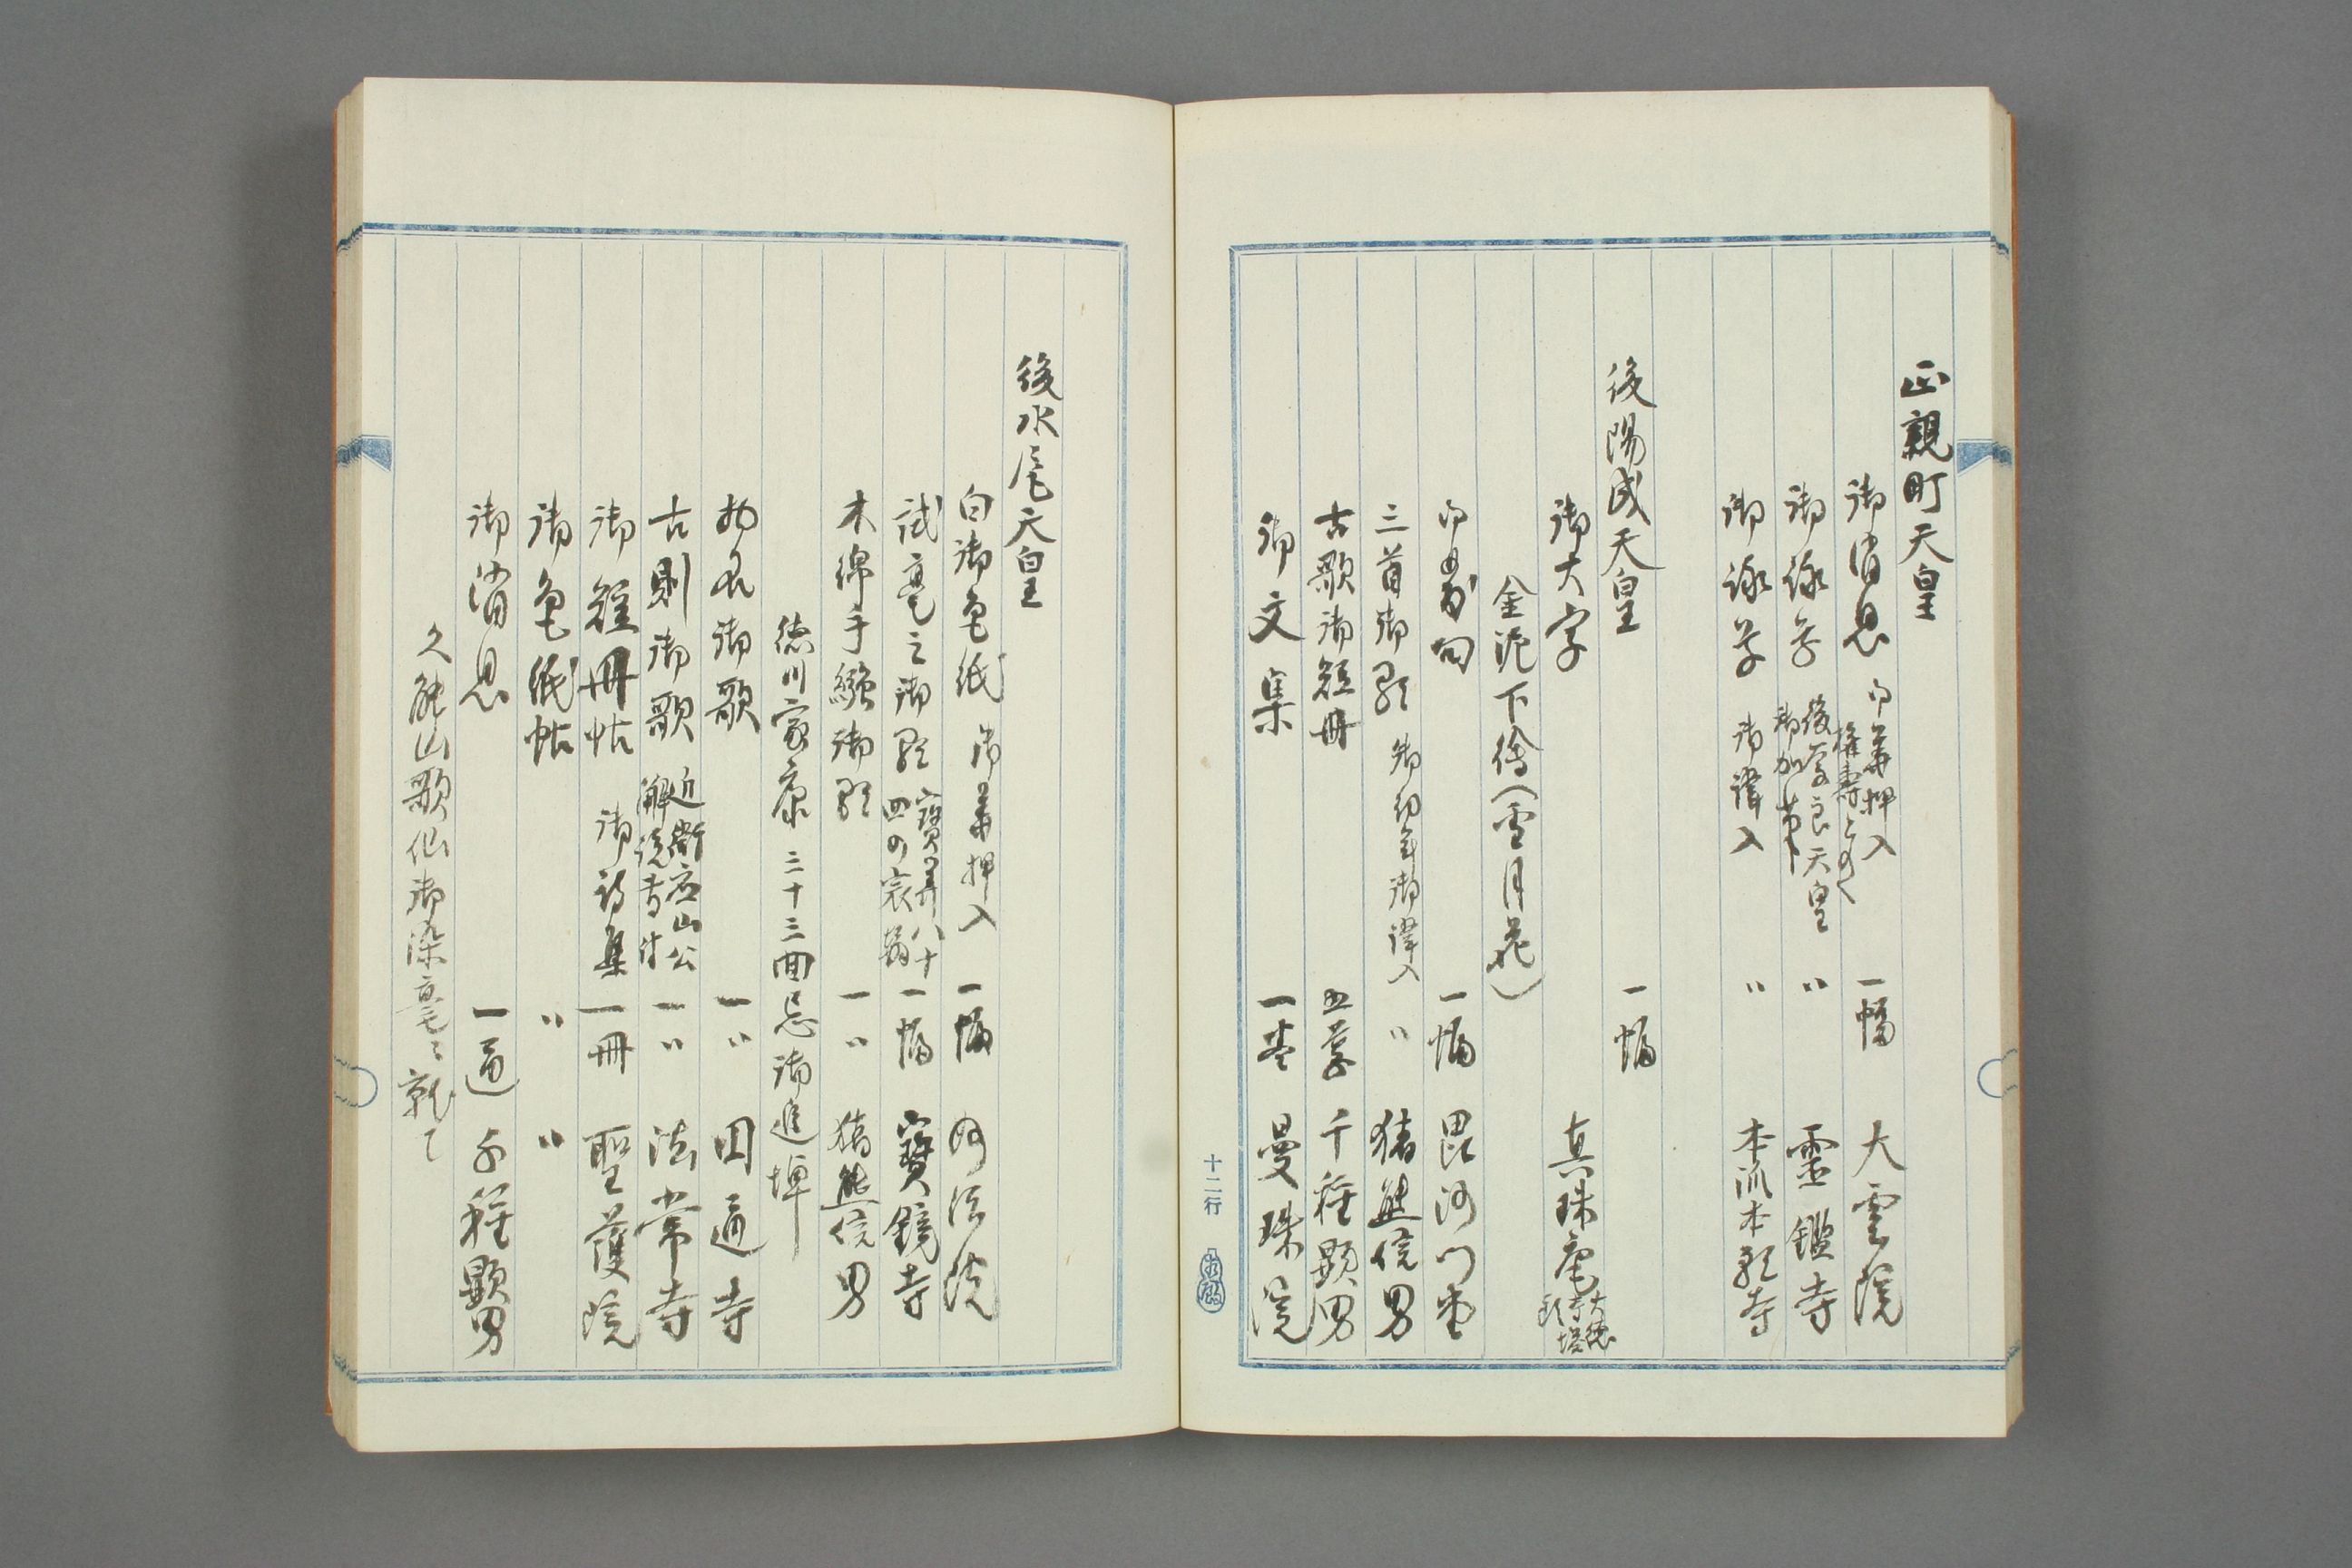 正親町天皇
御消息 御華押入 一幅 大雲院
御詠草 後奈良天皇 御加筆 〃 霊鑑寺
御詠草 御諱入 〃 本派本願寺
後陽成天皇
御大字 一幅 真珠庵 大徳寺塔頭
金泥下絵(雪月花)
一幅 毘沙門堂
三首御歌 御幼年御諱入 〃 猪熊信男
古歌御短冊 五葉 千種顕男
御文集 一巻 曼珠院
十二行
後水尾天皇
白御色紙 御華押入 一幅
試毫之御歌 宝算八十四の宸翰 一幅 寶鏡寺
木綿手繦御歌 一〃 猪熊信男
徳川家康 三十三回忌御追悼
御歌 一〃 円通寺
古則御歌 近衛応山公解説書付 一〃 法常寺
御短冊帖 御詩集 一冊 聖護院
御色紙帖 〃 〃
御消息 一通 千種顕男
久能山歌仙御染毫ニ就て